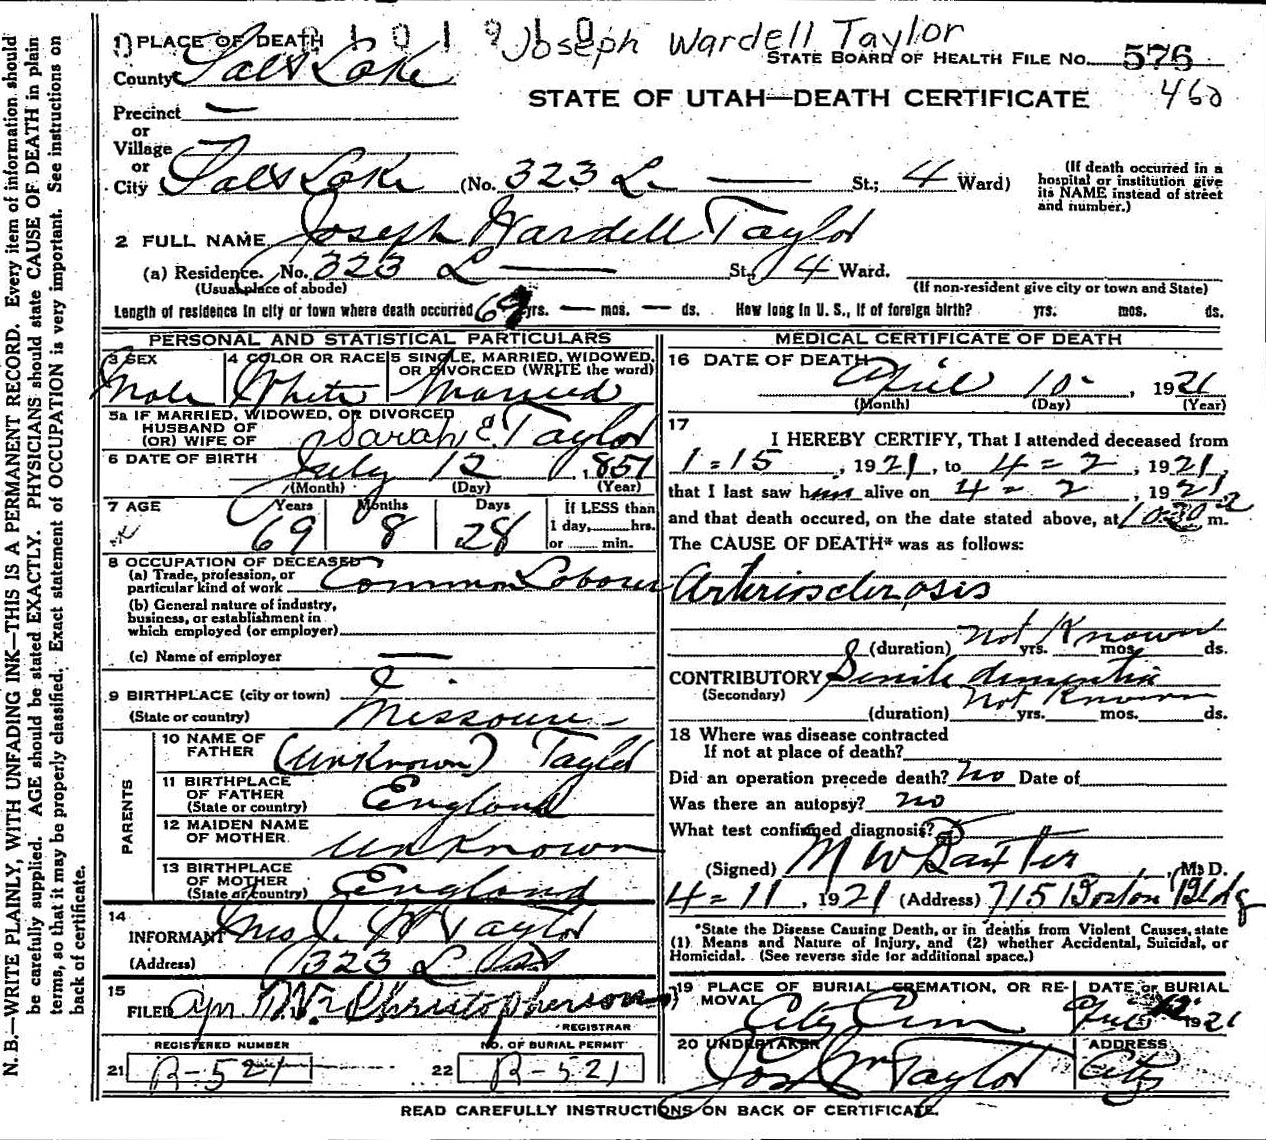 Joseph Wardell Taylor
1 PLACE OF DEATH
STATE BOARD OF HEALTH FILE No. 576
County Salt Lake
460
STATE OF UTAH—DEATH CERTIFICATE
Precinct —
or
Village
or
City Salt Lake (No. 323 L St.; 4 Ward)
(If death occurred in a hospital or institution give its NAME instead of street and number.)
2 FULL NAME Joseph Wardell Taylor
(a) Residence. No. 323 L St., 4 Ward.
(Usual place of abode) (If non-resident give city or town and State)
Length of residence in city or town where death occurred 69 yrs. — mos. — ds. How long in U. S., if of foreign birth? yrs. mos. ds.
PERSONAL AND STATISTICAL PARTICULARS
3 SEX 4 COLOR OR RACE 5 SINGLE, MARRIED, WIDOWED, OR DIVORCED (WRITE the word)
Male White Married
5a IF MARRIED, WIDOWED, OR DIVORCED
HUSBAND OF
(OR) WIFE OF Sarah E. Taylor
6 DATE OF BIRTH July 12, 1851
(Month) (Day) (Year)
7 AGE Years Months Days If LESS than
69 8 28 1 day,......hrs.
or ...... min.
8 OCCUPATION OF DECEASED
(a) Trade, profession, or
particular kind of work Common Laborer
(b) General nature of industry,
business, or establishment in
which employed (or employer)
(c) Name of employer —
9 BIRTHPLACE (city or town)
(State or country) Missouri
PARENTS
10 NAME OF
FATHER (unknown) Taylor
11 BIRTHPLACE
OF FATHER
(State or country) England
12 MAIDEN NAME
OF MOTHER unknown
13 BIRTHPLACE
OF MOTHER
(State or country) England
14
INFORMANT Mrs J. W Taylor
(Address) 323 L
15
FILED Apr Christopherson
REGISTRAR
REGISTERED NUMBER NO. OF BURIAL PERMIT
21 R-521 22 R-521
MEDICAL CERTIFICATE OF DEATH
16 DATE OF DEATH
April 10, 1921
(Month) (Day) (Year)
17
I HEREBY CERTIFY, That I attended deceased from
1=15, 1921, to 4=2, 1921,
that I last saw him alive on 4=2, 1921
and that death occured, on the date stated above, at 10:30 a m.
The CAUSE OF DEATH* was as follows:
Arteriosclerosis
not Known
(duration) yrs. mos. ds.
CONTRIBUTORY Senile dementia
(Secondary) not Known
(duration) yrs. mos. ds.
18 Where was disease contracted
If not at place of death?
Did an operation precede death? no Date of
Was there an autopsy? no
What test confirmed diagnosis?
(Signed) M W Baxter, M. D.
4=11, 1921 (Address) 715 Boston Bldg
*State the Disease Causing Death, or in deaths from Violent Causes, state
(1) Means and Nature of Injury, and (2) whether Accidental, Suicidal, or
Homicidal. (See reverse side for additional space.)
19 PLACE OF BURIAL, CREMATION, OR RE- DATE OF BURIAL
MOVAL City Cem 12 1921
20 UNDERTAKER ADDRESS
Jos Wm Taylor City
READ CAREFULLY INSTRUCTIONS ON BACK OF CERTIFICATE.
N. B.—WRITE PLAINLY, WITH UNFADING INK—THIS IS A PERMANENT RECORD. Every item of information should
be carefully supplied. AGE should be stated EXACTLY. PHYSICIANS should state CAUSE OF DEATH in plain
terms, so that it may be properly classified. Exact statement of OCCUPATION is very important. See instructions on
back of certificate.